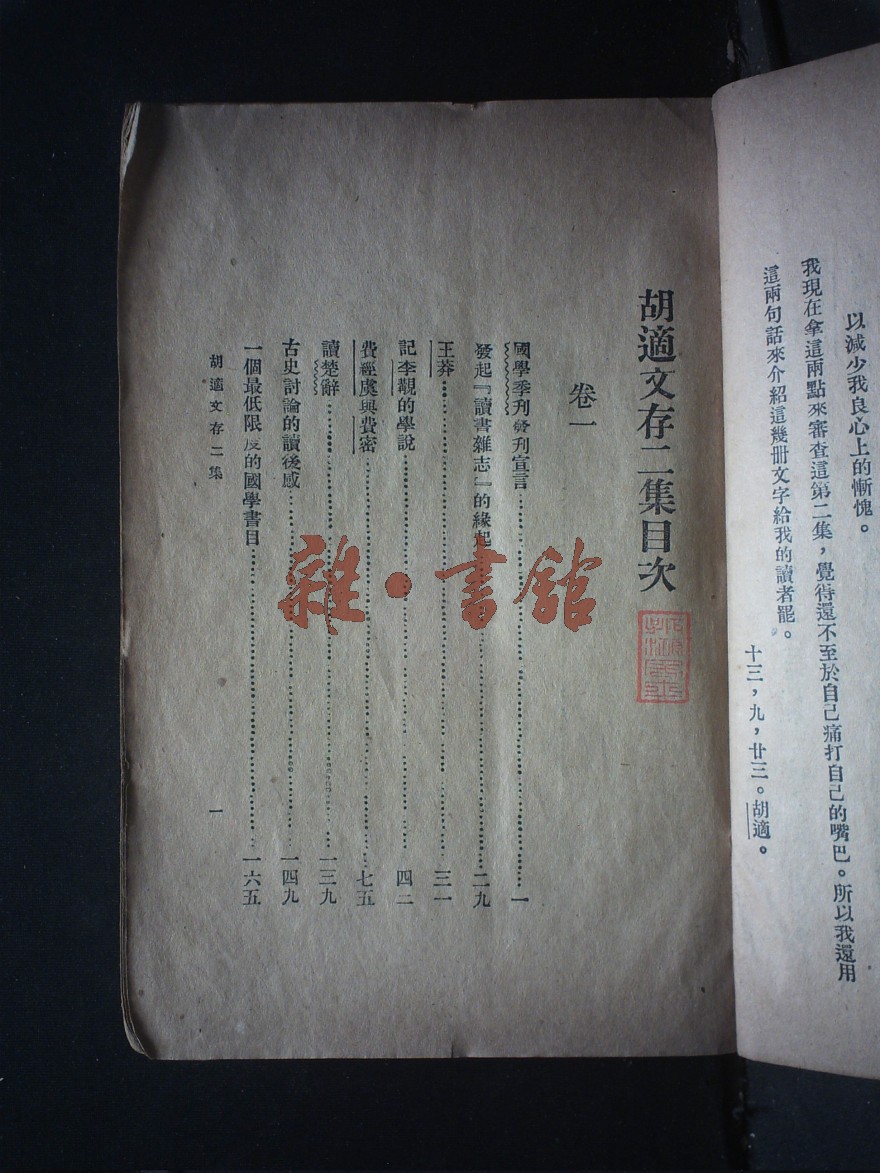 以減少我良心上的慚愧。
我現在拿這兩點來審查這第二集，覺得還不至於自己痛打自己的嘴巴。所以我還用
這兩句話來介紹這幾冊文字給我的讀者罷。
十三，九，廿三。胡適。
胡適文存二集目次
卷一
國學季刊發刊宣言……一
發起『讀書雜志』的緣起……二九
王莽……三一
記李覯的學說……四二
費經虞與費密……七五
讀楚辭……一三九
古史討論的讀後感……一四九
一個最低限度的國學書目……一六五
胡適文存二集
一
雜·書館